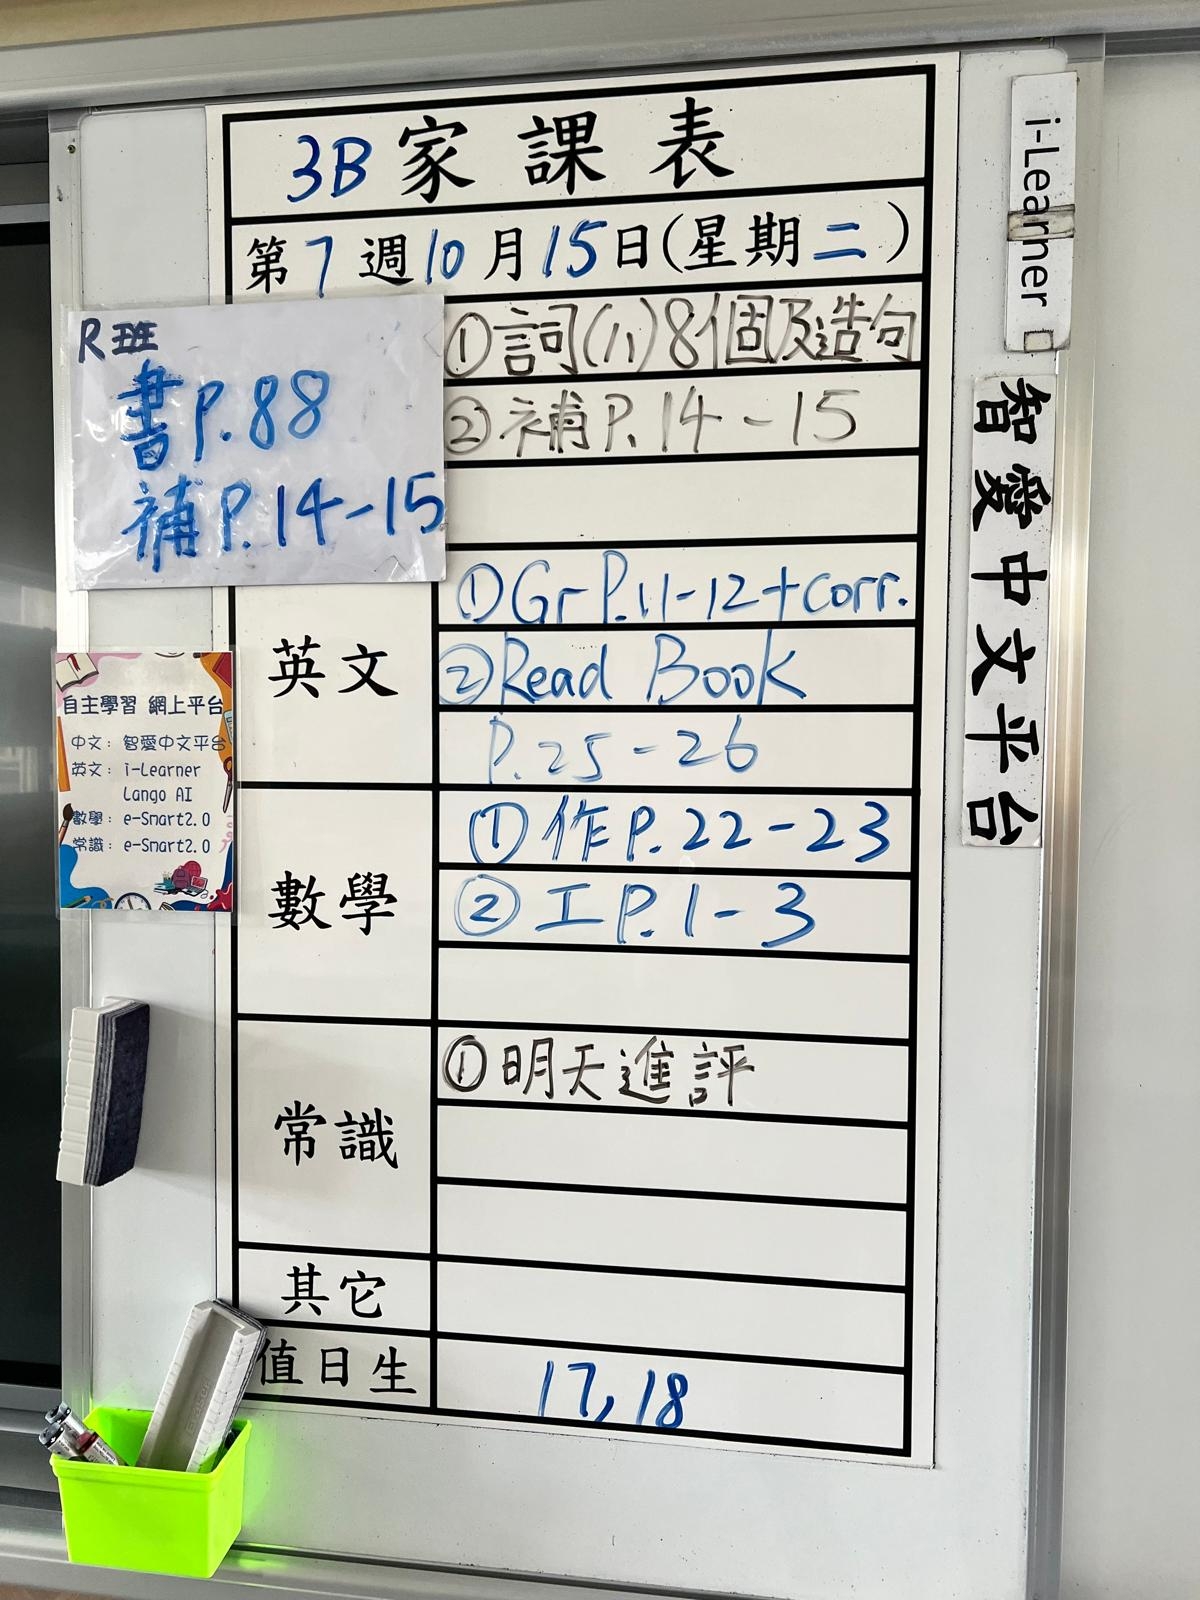 3B 家課表
第7週10月15日(星期二)
R班
書P.88
補P.14-15
①詞(八)8個及造句
②補P.14-15
英文
①Gr P.11-12+corr.
②Read Book
P.25-26
數學
①作P.22-23
②工P.1-3
常識
①明天進評
其它
值日生
17,18
自主學習 網上平台
中文：智愛中文平台
英文：i-Learner
Lango AI
數學：e-Smart2.0
常識：e-Smart2.0
i-Learner
智愛中文平台